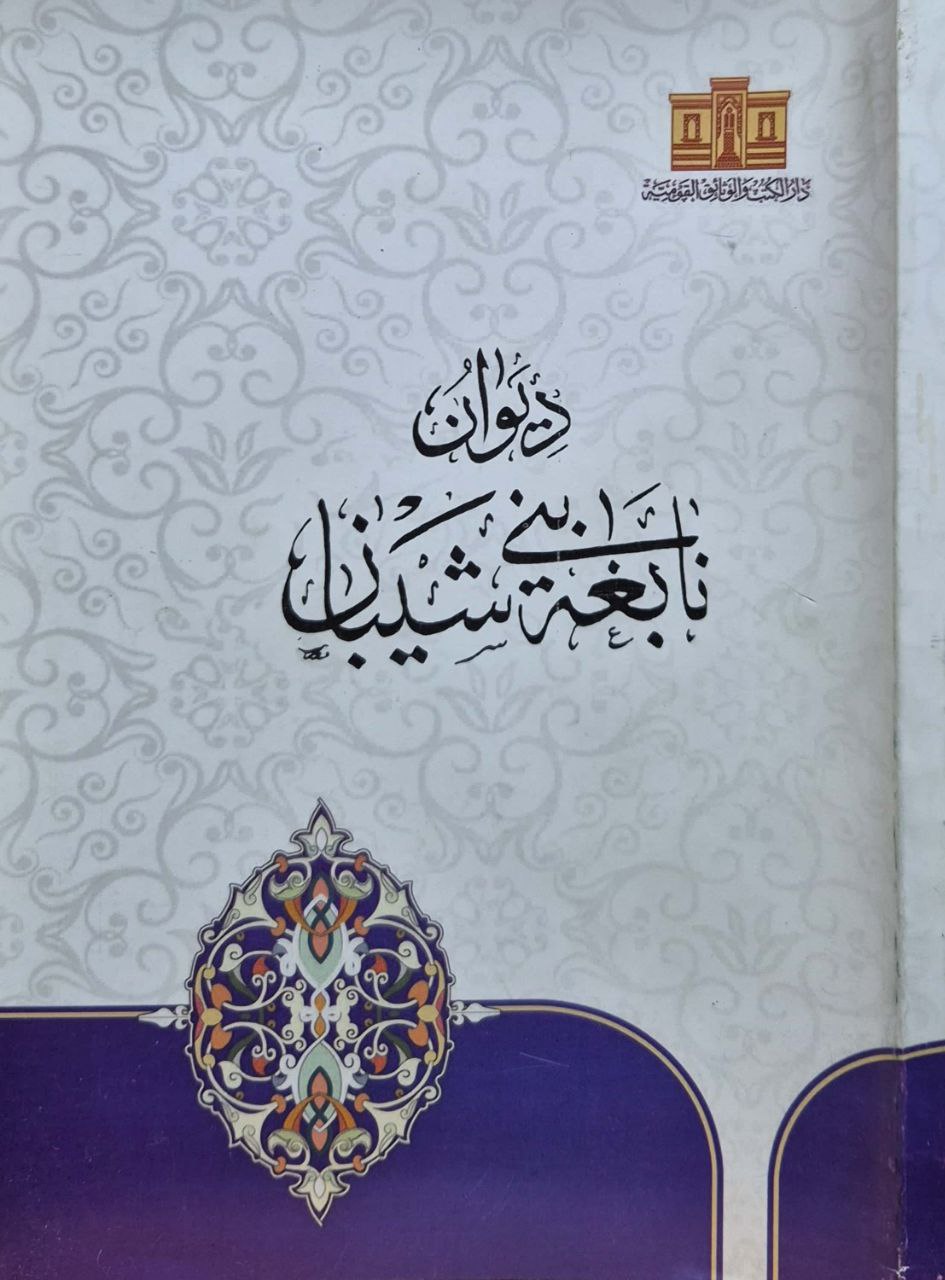 دار الكتب والوثائق القومية
ديوان
نابغة بني شيبان